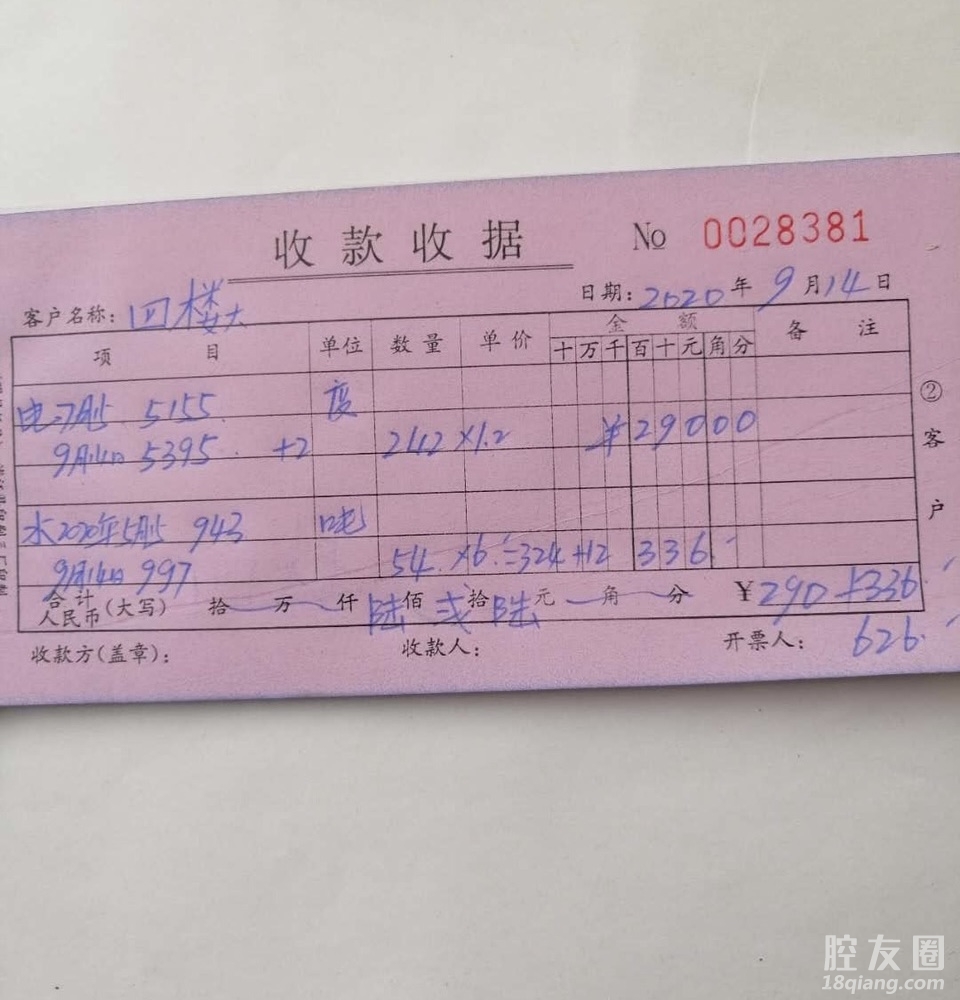 收款收据 No 0028381
客户名称：四楼大 日期：2020年9月14日
项目 单位 数量 单价 金额 备注
十 万 千 百 十 元 角 分
电 5155 度
9月14日 5395 +2 242 ×1.2 ¥29000
水2020年5月 943 吨
9月14日 997 54 ×6 =324 +12 336
合计
人民币（大写） 拾 万 仟 陆佰 弍拾 陆元 角 分 ¥290+336
收款方（盖章）： 收款人： 开票人： 626
②客户
腔友圈
18qiang.com